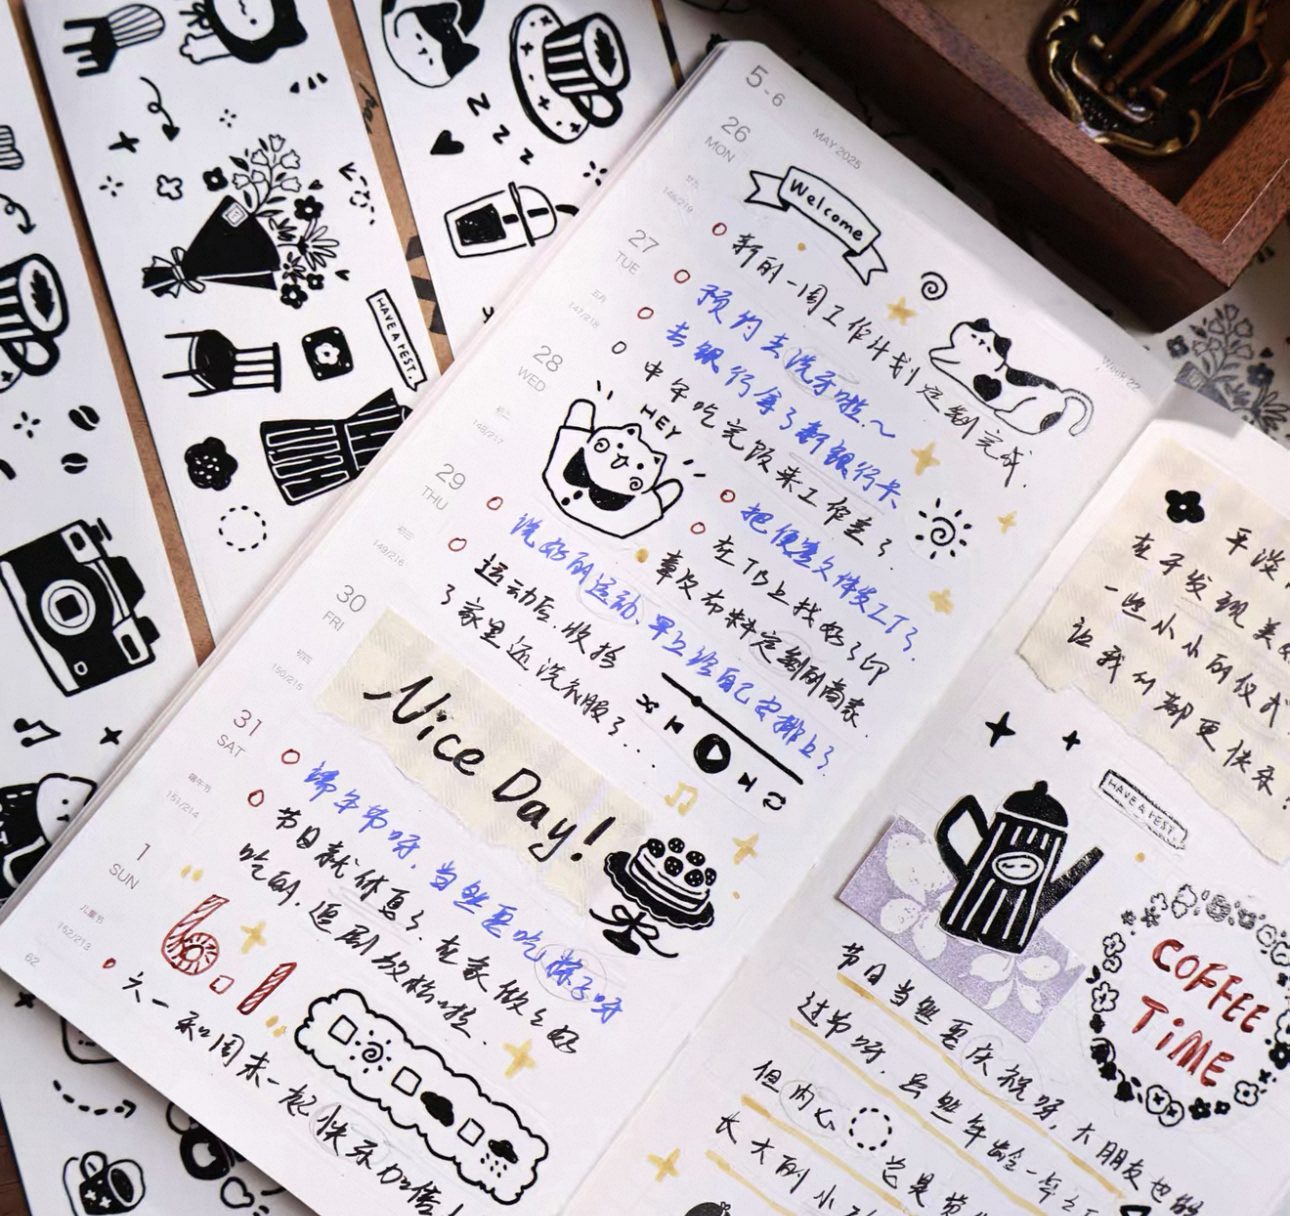 HAVE A REST.
z z z z
5-6
MAY 2025
26
MON
146/219
Welcome
新的一周工作计划定制完成.
27
TUE
147/218
预约去洗牙啦.~
去银行拿了新银行卡
28
WED
初二
148/217
中午吃完饭来工作室了
HEY
把便签文件发工厂了.
在TB上找好了印
章及布料定制的商家.
29
THU
初三
149/216
洗好的运动、早上给自己安排上了.
运动后.收拾
了家里还洗衣服了..
30
FRI
初四
150/215
Nice Day!
31
SAT
端午节
151/214
端午节呀.当然要吃粽子呀
节日就休息了.在家做了好
吃的.追剧放松啦.
1
SUN
儿童节
152/213
6.1
六一和周末一起快乐加倍!
62
Week 22
平淡
在于发现美好
一些小小的仪式
让我们都更快乐!
HAVE A REST.
COFFEE
TiME
节日当然要庆祝呀,大朋友也能
过节呀.虽然年龄一年
但内心
总是
长大的小